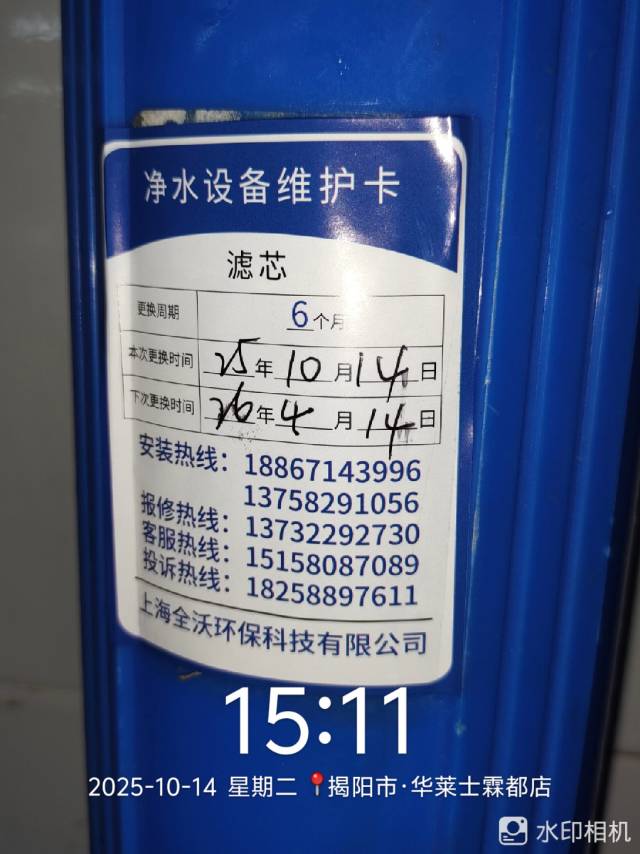 净水设备维护卡
滤芯
更换周期 6个月
本次更换时间 25年10月14日
下次更换时间 26年4月14日
安装热线：18867143996
13758291056
报修热线：13732292730
客服热线：15158087089
投诉热线：18258897611
上海全沃环保科技有限公司
15:11
2025-10-14 星期二 揭阳市·华莱士霖都店
水印相机